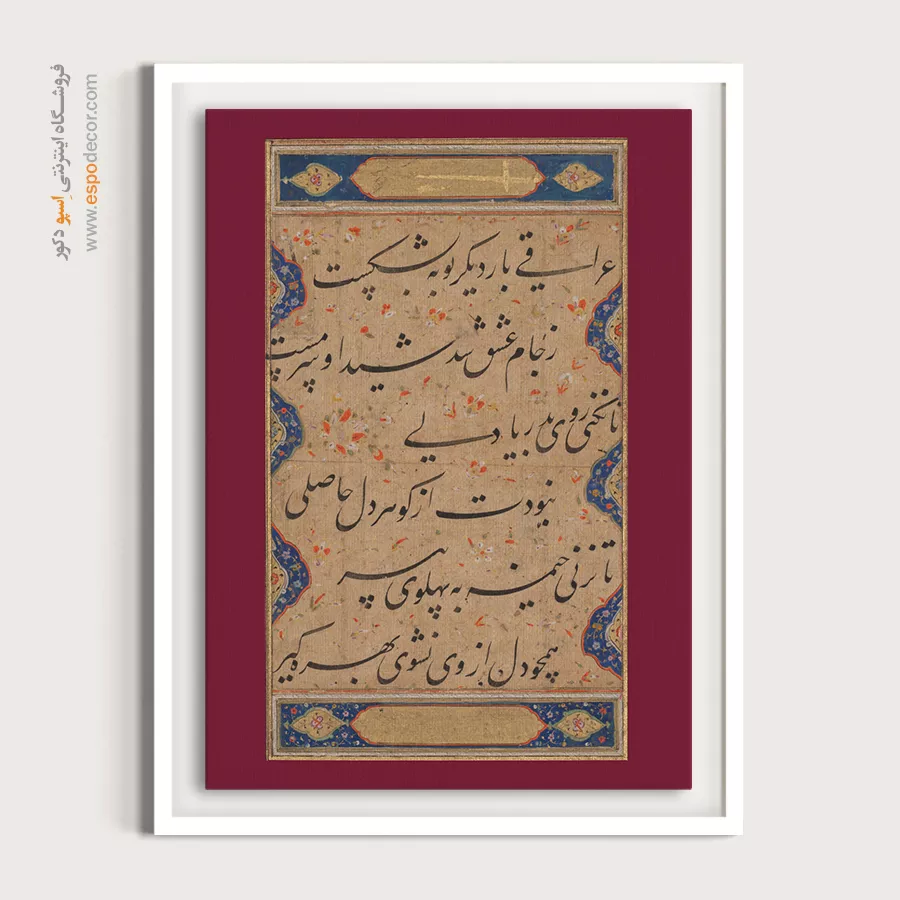 عراقی بار دیگر توبه بشکست
ز جام عشق شد شیدا و سرمست
تا نکنی روی بدریا دلی
نبودت از گوهر دل حاصلی
تا نزنی خیمه به پهلوی پیر
همچو دل از وی نشوی بهره گیر
فروشگاه اینترنتی اِسپو دکور
www.espodecor.com